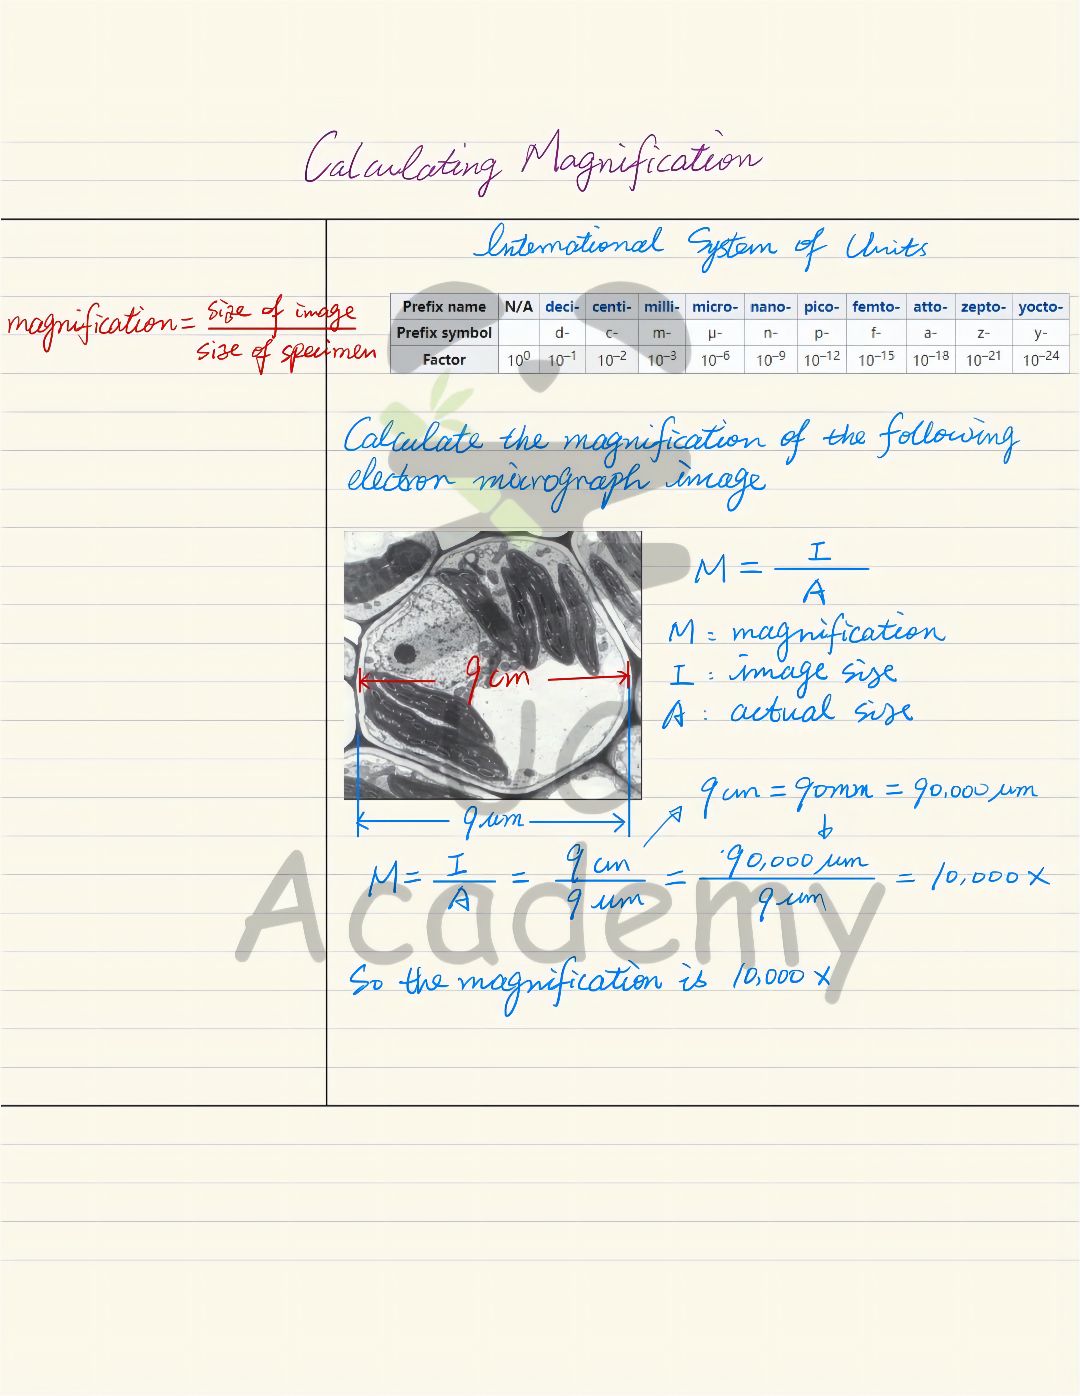 Calculating Magnification
magnification = size of image
size of specimen
International System of Units
Prefix name N/A deci- centi- milli- micro- nano- pico- femto- atto- zepto- yocto-
Prefix symbol d- c- m- μ- n- p- f- a- z- y-
Factor 10⁰ 10⁻¹ 10⁻² 10⁻³ 10⁻⁶ 10⁻⁹ 10⁻¹² 10⁻¹⁵ 10⁻¹⁸ 10⁻²¹ 10⁻²⁴
Calculate the magnification of the following
electron micrograph image
M = I / A
M : magnification
I : image size
A : actual size
9 cm
9 um
9 cm = 90mm = 90,000 μm
M = I / A = 9 cm / 9 um = 90,000 μm / 9 um = 10,000 X
So the magnification is 10,000 X
Academy